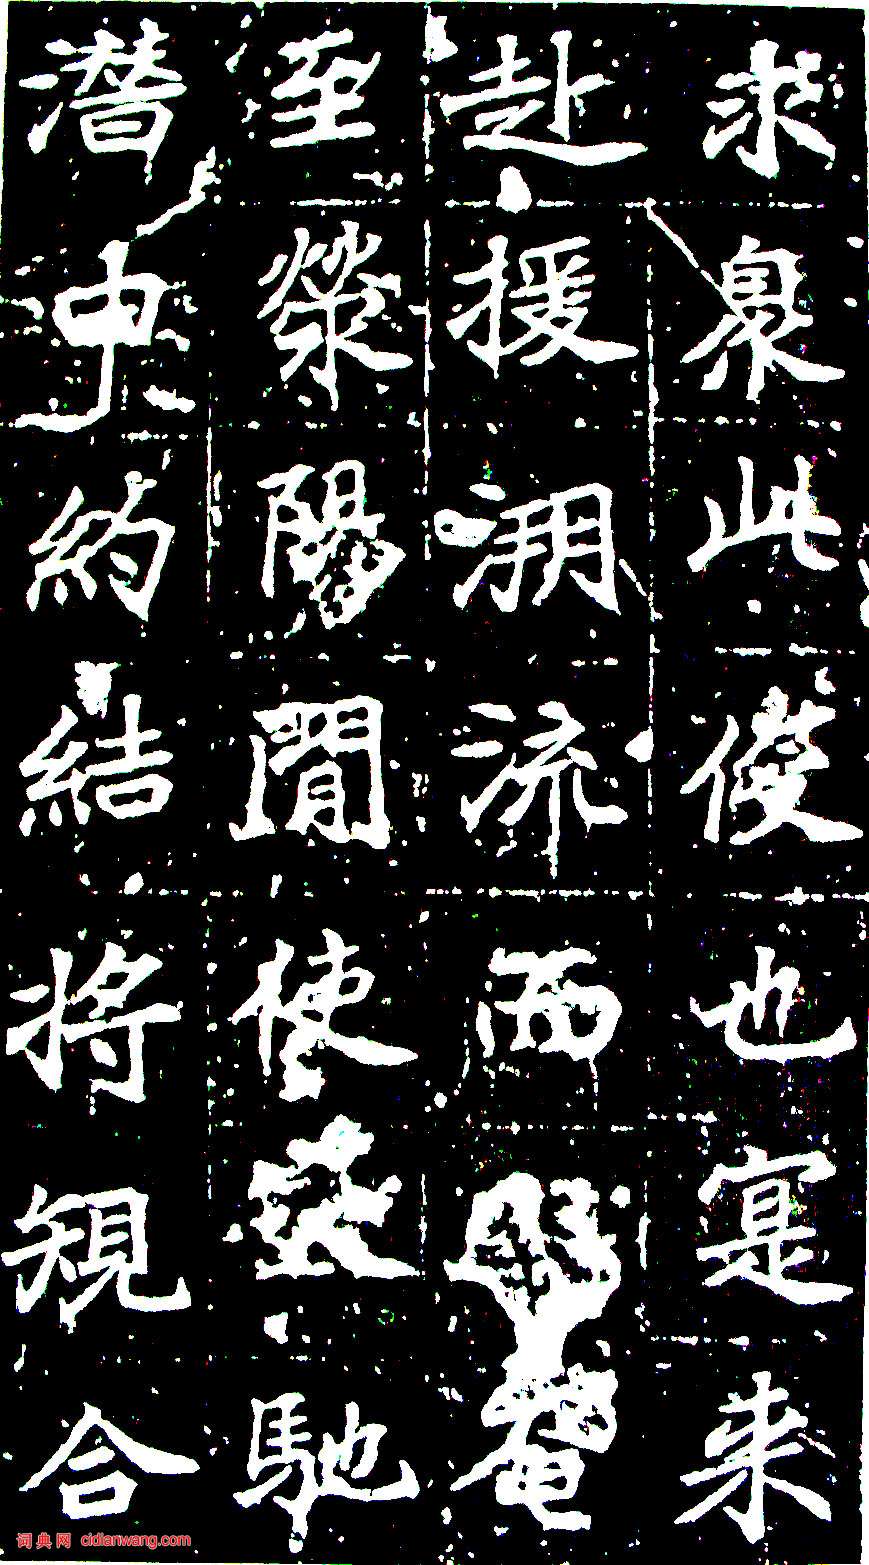 求臮此儁也寔来
赴援淜流而奄
至滎陽閒使馳
潛申約結將規合
词典网 cidianwang.com